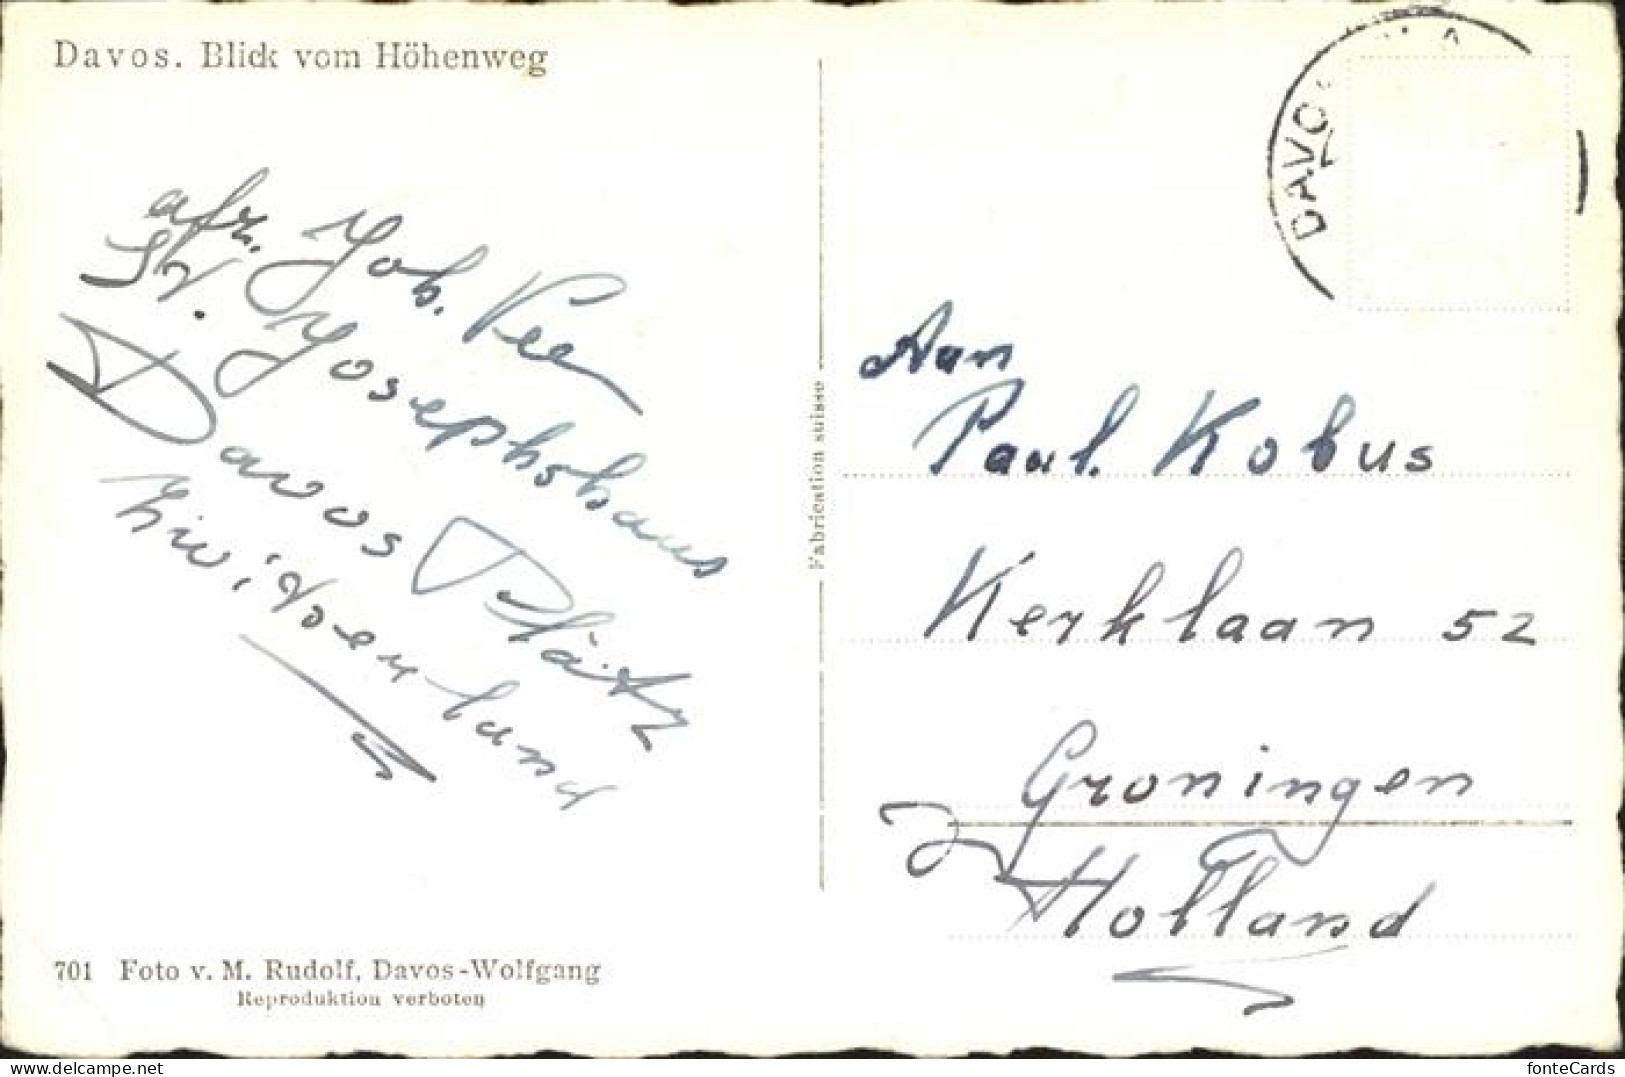 Davos. Blick vom Höhenweg
afz. Joh. Vee
St. Josephshaus
Davos Plätz
Zwitserland
701 Foto v. M. Rudolf, Davos-Wolfgang
Reproduktion verboten
Fabrication suisse
DAVOS
Aan
Paul. Kobus
Kerklaan 52
Groningen
Holland
delcampe.net
fonteCards